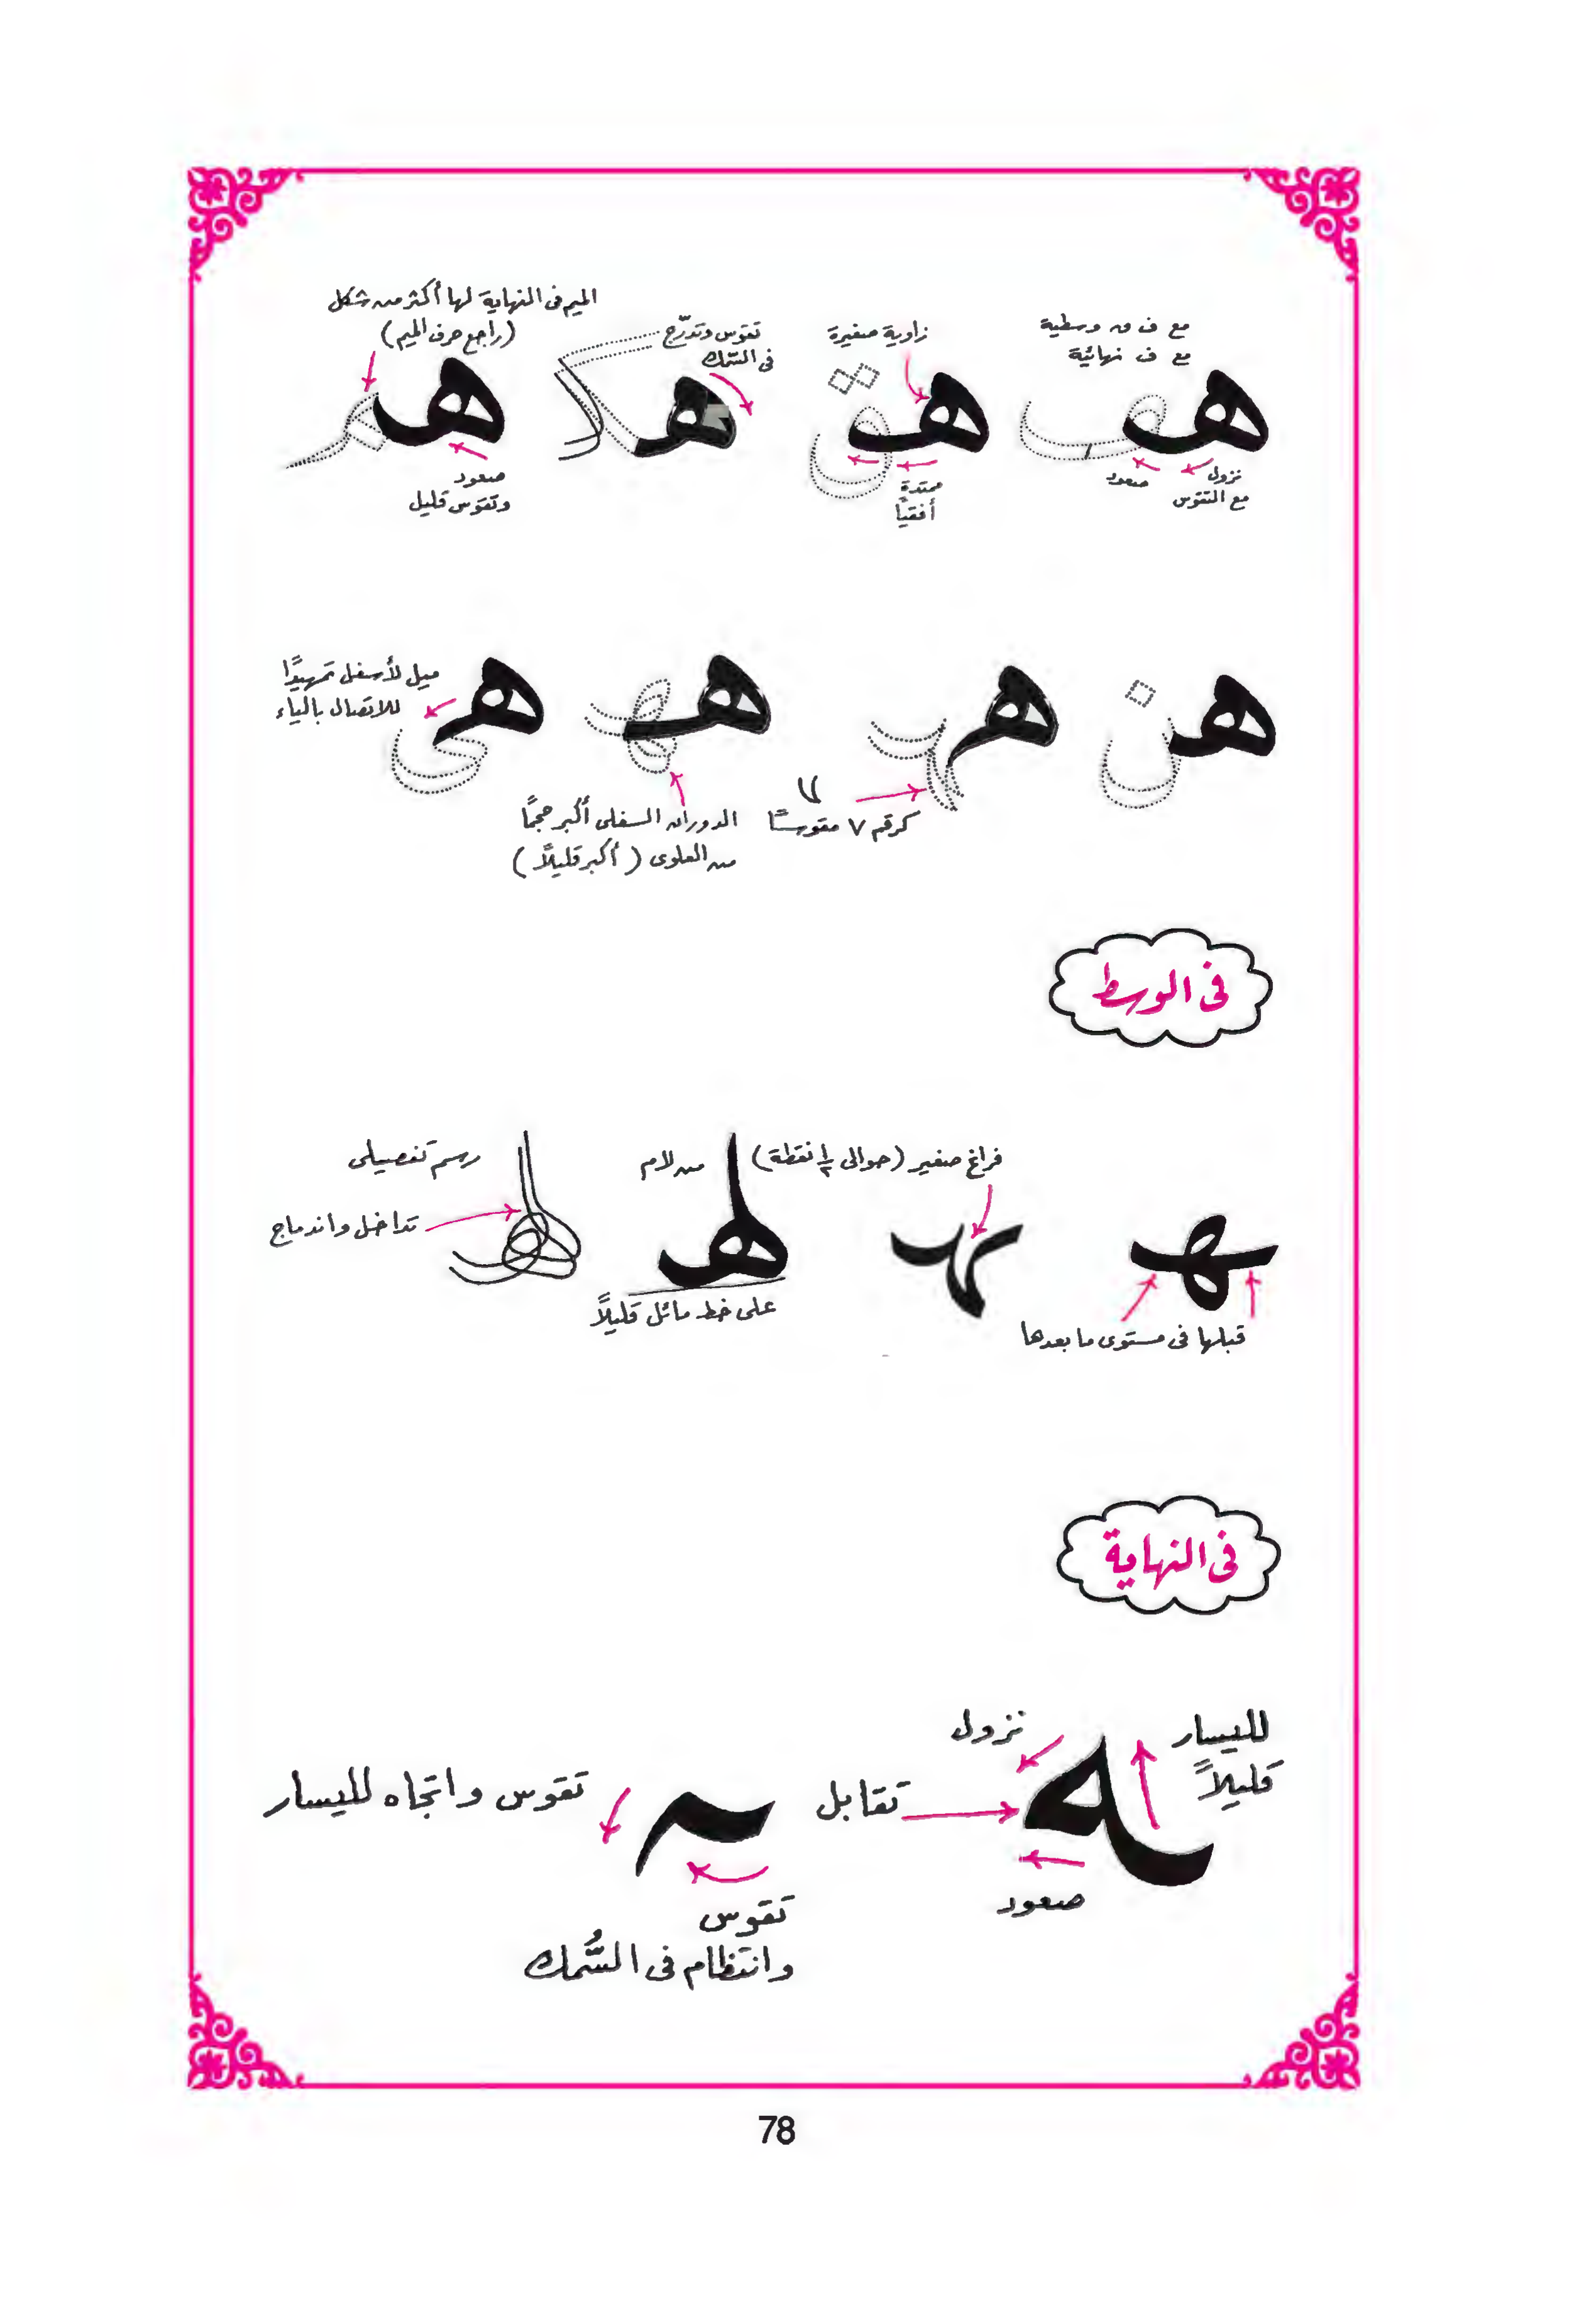 مع ف ق وسطية
مع ف نهائية
نزول
مع التقوس
صعود
زاوية صغيرة
ممتدة
أفقياً
تقوس وتدرّج
فى السُّمك
الميم فى النهاية لها أكثر من شكل
(راجع حرف الميم)
صعود
وتقوس قليل
كرقم ٧ مقوسًا
الدوران السفلى أكبر حجمًا
من العلوى (أكبر قليلاً)
ميل لأسفل تمهيدًا
للاتصال بالياء
فى الوسط
قبلها فى مستوى ما بعدها
فراغ صغير (حوالى ١/٢ نقطة)
من لام
على خط مائل قليلاً
رسم تفصيلى
تداخل واندماج
فى النهاية
لليسار
قليلاً
نزول
تقابل
صعود
تقوس واتجاه لليسار
تقوس
وانتظام فى السُّمك
78